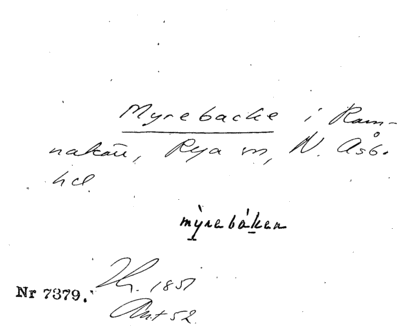 Myrebacke i Ram-
nakärr, Rya sn, N. Åsb.
hd.
mỳrebáken
Nr 7379.
1851
52